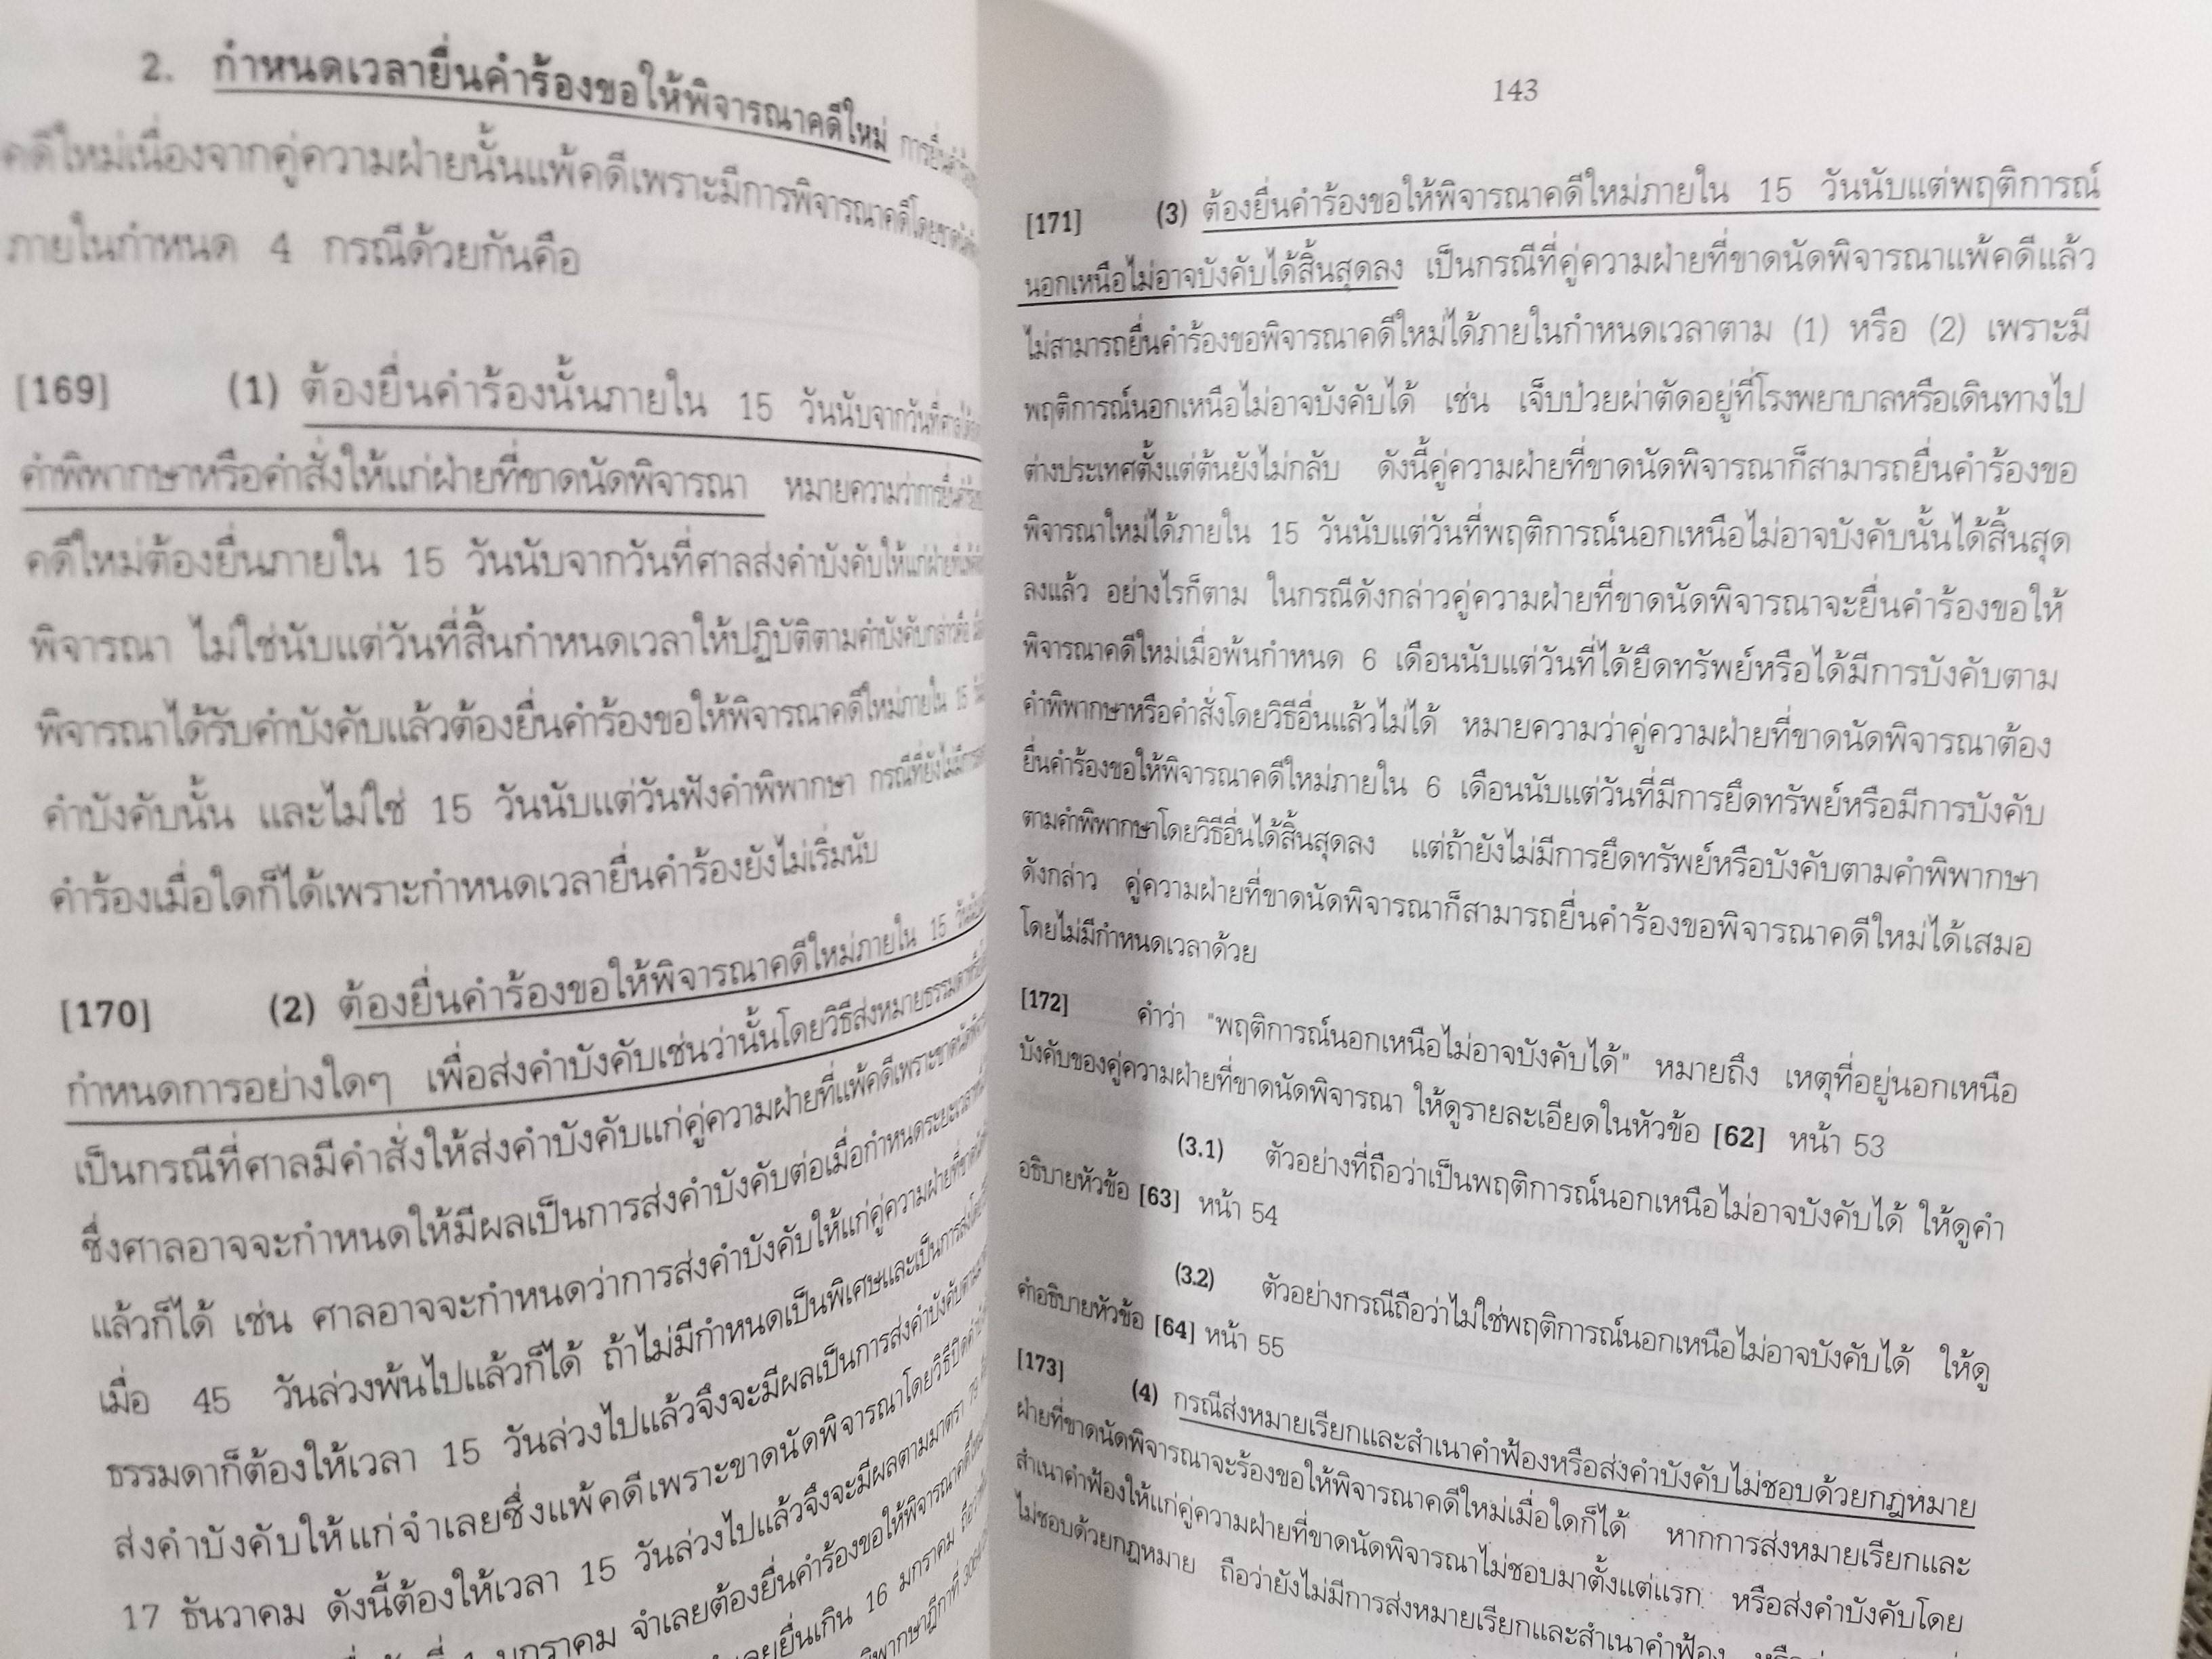 2. กำหนดเวลายื่นคำร้องขอให้พิจารณาคดีใหม่ การยื่น
คดีใหม่เนื่องจากคู่ความฝ่ายนั้นแพ้คดีเพราะมีการพิจารณาคดีโดยขาดนัด
ภายในกำหนด 4 กรณีด้วยกันคือ
[169] (1) ต้องยื่นคำร้องนั้นภายใน 15 วันนับจากวันที่ศาล
คำพิพากษาหรือคำสั่งให้แก่ฝ่ายที่ขาดนัดพิจารณา หมายความว่าการยื่น
คดีใหม่ต้องยื่นภายใน 15 วันนับจากวันที่ศาลส่งคำบังคับให้แก่ฝ่ายที่
พิจารณา ไม่ใช่นับแต่วันที่สิ้นกำหนดเวลาให้ปฏิบัติตามคำบังคับกล่าวคือ
พิจารณาได้รับคำบังคับแล้วต้องยื่นคำร้องขอให้พิจารณาคดีใหม่ภายใน 15
คำบังคับนั้น และไม่ใช่ 15 วันนับแต่วันฟังคำพิพากษา กรณีที่ยังไม่มีการ
คำร้องเมื่อใดก็ได้เพราะกำหนดเวลายื่นคำร้องยังไม่เริ่มนับ
[170] (2) ต้องยื่นคำร้องขอให้พิจารณาคดีใหม่ภายใน 15
กำหนดการอย่างใดๆ เพื่อส่งคำบังคับเช่นว่านั้นโดยวิธีส่งหมายธรรมดา
เป็นกรณีที่ศาลมีคำสั่งให้ส่งคำบังคับแก่คู่ความฝ่ายที่แพ้คดีเพราะขาดนัด
ซึ่งศาลอาจจะกำหนดให้มีผลเป็นการส่งคำบังคับต่อเมื่อกำหนดระยะเวลา
แล้วก็ได้ เช่น ศาลอาจจะกำหนดว่าการส่งคำบังคับให้แก่คู่ความฝ่ายที่ขาดนัด
เมื่อ 45 วันล่วงพ้นไปแล้วก็ได้ ถ้าไม่มีกำหนดเป็นพิเศษและเป็นการส่งโดย
ธรรมดาก็ต้องให้เวลา 15 วันล่วงไปแล้วจึงจะมีผลเป็นการส่งคำบังคับตาม
ส่งคำบังคับให้แก่จำเลยซึ่งแพ้คดีเพราะขาดนัดพิจารณาโดยวิธีปิด
17 ธันวาคม ดังนี้ต้องให้เวลา 15 วันล่วงไปแล้วจึงจะมีผลตามมาตรา 79
มกราคม จำเลยต้องยื่นคำร้องขอให้พิจารณาคดีใหม่
ยื่นเกิน 16 มกราคม
พิพากษาฎีกาที่
143
[171] (3) ต้องยื่นคำร้องขอให้พิจารณาคดีใหม่ภายใน 15 วันนับแต่พฤติการณ์
นอกเหนือไม่อาจบังคับได้สิ้นสุดลง เป็นกรณีที่คู่ความฝ่ายที่ขาดนัดพิจารณาแพ้คดีแล้ว
ไม่สามารถยื่นคำร้องขอพิจารณาคดีใหม่ได้ภายในกำหนดเวลาตาม (1) หรือ (2) เพราะมี
พฤติการณ์นอกเหนือไม่อาจบังคับได้ เช่น เจ็บป่วยผ่าตัดอยู่ที่โรงพยาบาลหรือเดินทางไป
ต่างประเทศตั้งแต่ต้นยังไม่กลับ ดังนี้คู่ความฝ่ายที่ขาดนัดพิจารณาก็สามารถยื่นคำร้องขอ
พิจารณาใหม่ได้ภายใน 15 วันนับแต่วันที่พฤติการณ์นอกเหนือไม่อาจบังคับนั้นได้สิ้นสุด
ลงแล้ว อย่างไรก็ตาม ในกรณีดังกล่าวคู่ความฝ่ายที่ขาดนัดพิจารณาจะยื่นคำร้องขอให้
พิจารณาคดีใหม่เมื่อพ้นกำหนด 6 เดือนนับแต่วันที่ได้ยึดทรัพย์หรือได้มีการบังคับตาม
คำพิพากษาหรือคำสั่งโดยวิธีอื่นแล้วไม่ได้ หมายความว่าคู่ความฝ่ายที่ขาดนัดพิจารณาต้อง
ยื่นคำร้องขอให้พิจารณาคดีใหม่ภายใน 6 เดือนนับแต่วันที่มีการยึดทรัพย์หรือมีการบังคับ
ตามคำพิพากษาโดยวิธีอื่นได้สิ้นสุดลง แต่ถ้ายังไม่มีการยึดทรัพย์หรือบังคับตามคำพิพากษา
ดังกล่าว คู่ความฝ่ายที่ขาดนัดพิจารณาก็สามารถยื่นคำร้องขอพิจารณาคดีใหม่ได้เสมอ
โดยไม่มีกำหนดเวลาด้วย
[172] คำว่า "พฤติการณ์นอกเหนือไม่อาจบังคับได้" หมายถึง เหตุที่อยู่นอกเหนือ
บังคับของคู่ความฝ่ายที่ขาดนัดพิจารณา ให้ดูรายละเอียดในหัวข้อ [62] หน้า 53
(3.1) ตัวอย่างที่ถือว่าเป็นพฤติการณ์นอกเหนือไม่อาจบังคับได้ ให้ดูคำ
อธิบายหัวข้อ [63] หน้า 54
(3.2) ตัวอย่างกรณีถือว่าไม่ใช่พฤติการณ์นอกเหนือไม่อาจบังคับได้ ให้ดู
คำอธิบายหัวข้อ [64] หน้า 55
[173] (4) กรณีส่งหมายเรียกและสำเนาคำฟ้องหรือส่งคำบังคับไม่ชอบด้วยกฎหมาย
ฝ่ายที่ขาดนัดพิจารณาจะร้องขอให้พิจารณาคดีใหม่เมื่อใดก็ได้ หากการส่งหมายเรียกและ
สำเนาคำฟ้องให้แก่คู่ความฝ่ายที่ขาดนัดพิจารณาไม่ชอบมาตั้งแต่แรก หรือส่งคำบังคับโดย
ไม่ชอบด้วยกฎหมาย ถือว่ายังไม่มีการส่งหมายเรียกและสำเนาคำฟ้อง